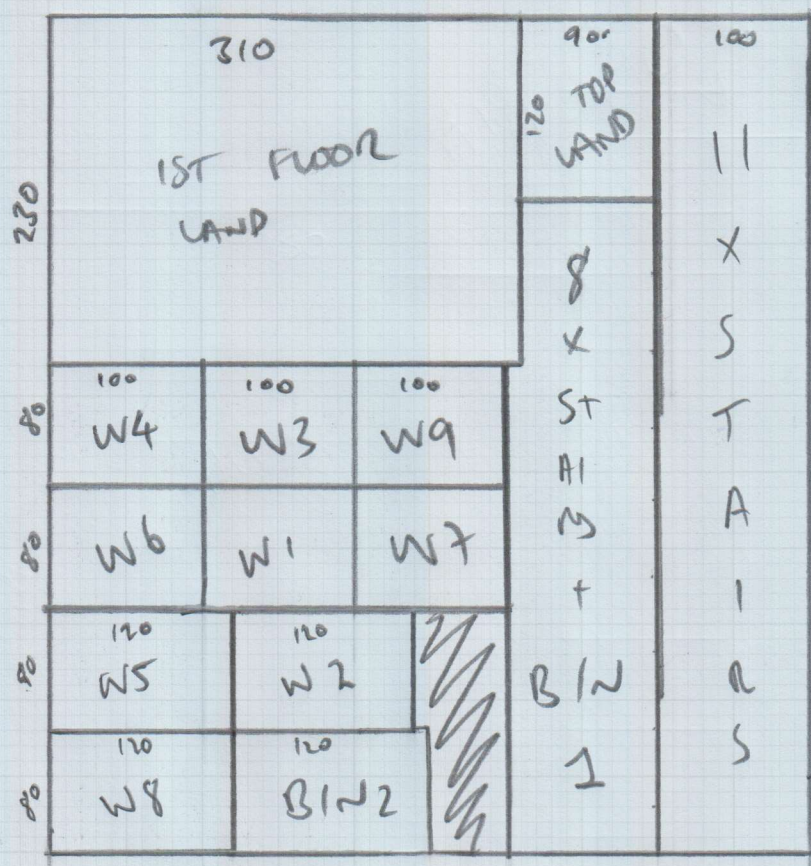 310
1ST FLOOR
LAND
230
90
120
TOP
LAND
100
11
X
S
T
A
I
R
S
8
X
ST
AI
R
+
BIN
1
80
100
W4
100
W3
100
W9
80
W6
W1
W7
80
120
W5
120
W2
80
120
W8
120
BIN2